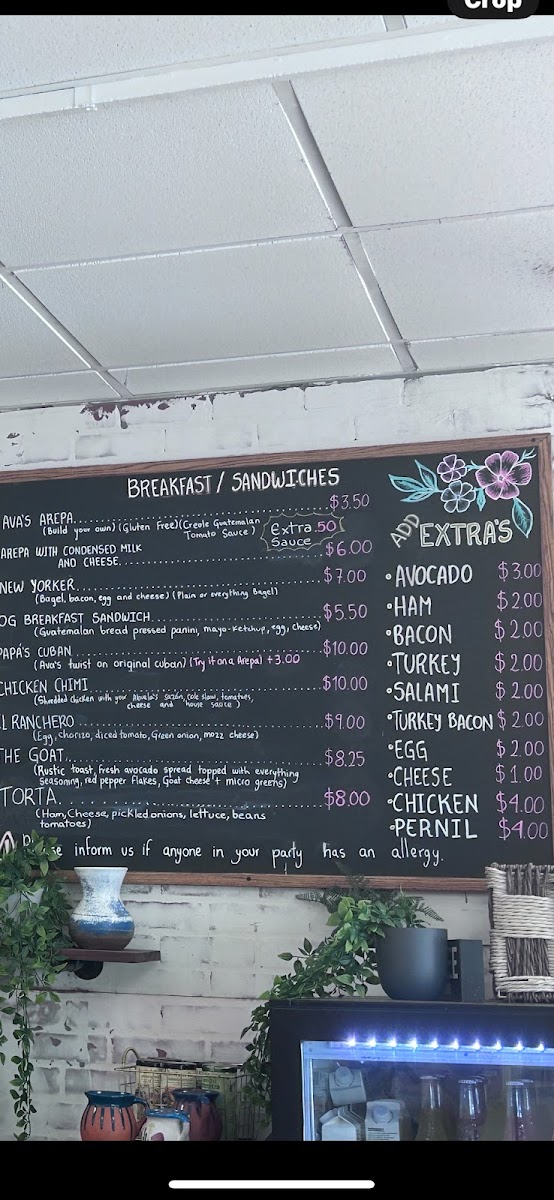 Crop
BREAKFAST / SANDWICHES
AVA'S AREPA.......................$3.50
(Build your own) (Gluten Free) (Creole Guatemalan
Tomato Sauce)
Extra .50
Sauce
AREPA WITH CONDENSED MILK
AND CHEESE.......................$6.00
NEW YORKER.......................$7.00
(Bagel, bacon, egg and cheese) (Plain or everything Bagel)
OG BREAKFAST SANDWICH.......................$5.50
(Guatemalan bread pressed panini, mayo-ketchup, egg, cheese)
PAPA'S CUBAN.......................$10.00
(Ava's twist on original cuban) (Try it on a Arepa) +3.00
CHICKEN CHIMI.......................$10.00
(Shredded chicken with your Abuela's sazón, cole slaw, tomatoes,
cheese and house sauce)
L RANCHERO.......................$9.00
(Egg, chorizo, diced tomato, Green onion, mozz cheese)
THE GOAT.......................$8.25
(Rustic toast, fresh avocado spread topped with everything
seasoning, red pepper flakes, Goat cheese + micro greens)
TORTA.......................$8.00
(Ham, Cheese, pickled onions, lettuce, beans
tomatoes)
Please inform us if anyone in your party has an allergy.
ADD EXTRA'S
•AVOCADO $3.00
•HAM $2.00
•BACON $2.00
•TURKEY $2.00
•SALAMI $2.00
•TURKEY BACON $2.00
•EGG $2.00
•CHEESE $1.00
•CHICKEN $4.00
•PERNIL $4.00